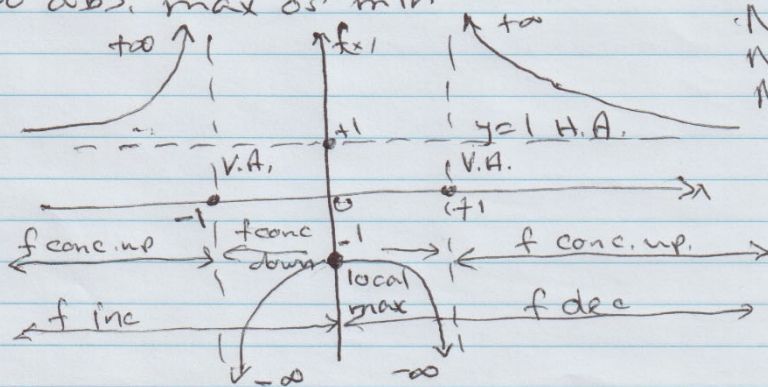 abs. max or min
+∞ f(x) +∞
+1 y=1 H.A.
V.A. V.A.
-1 0 +1
f conc. up f conc down -1 f conc. up.
local max
f inc f dec
-∞ -∞